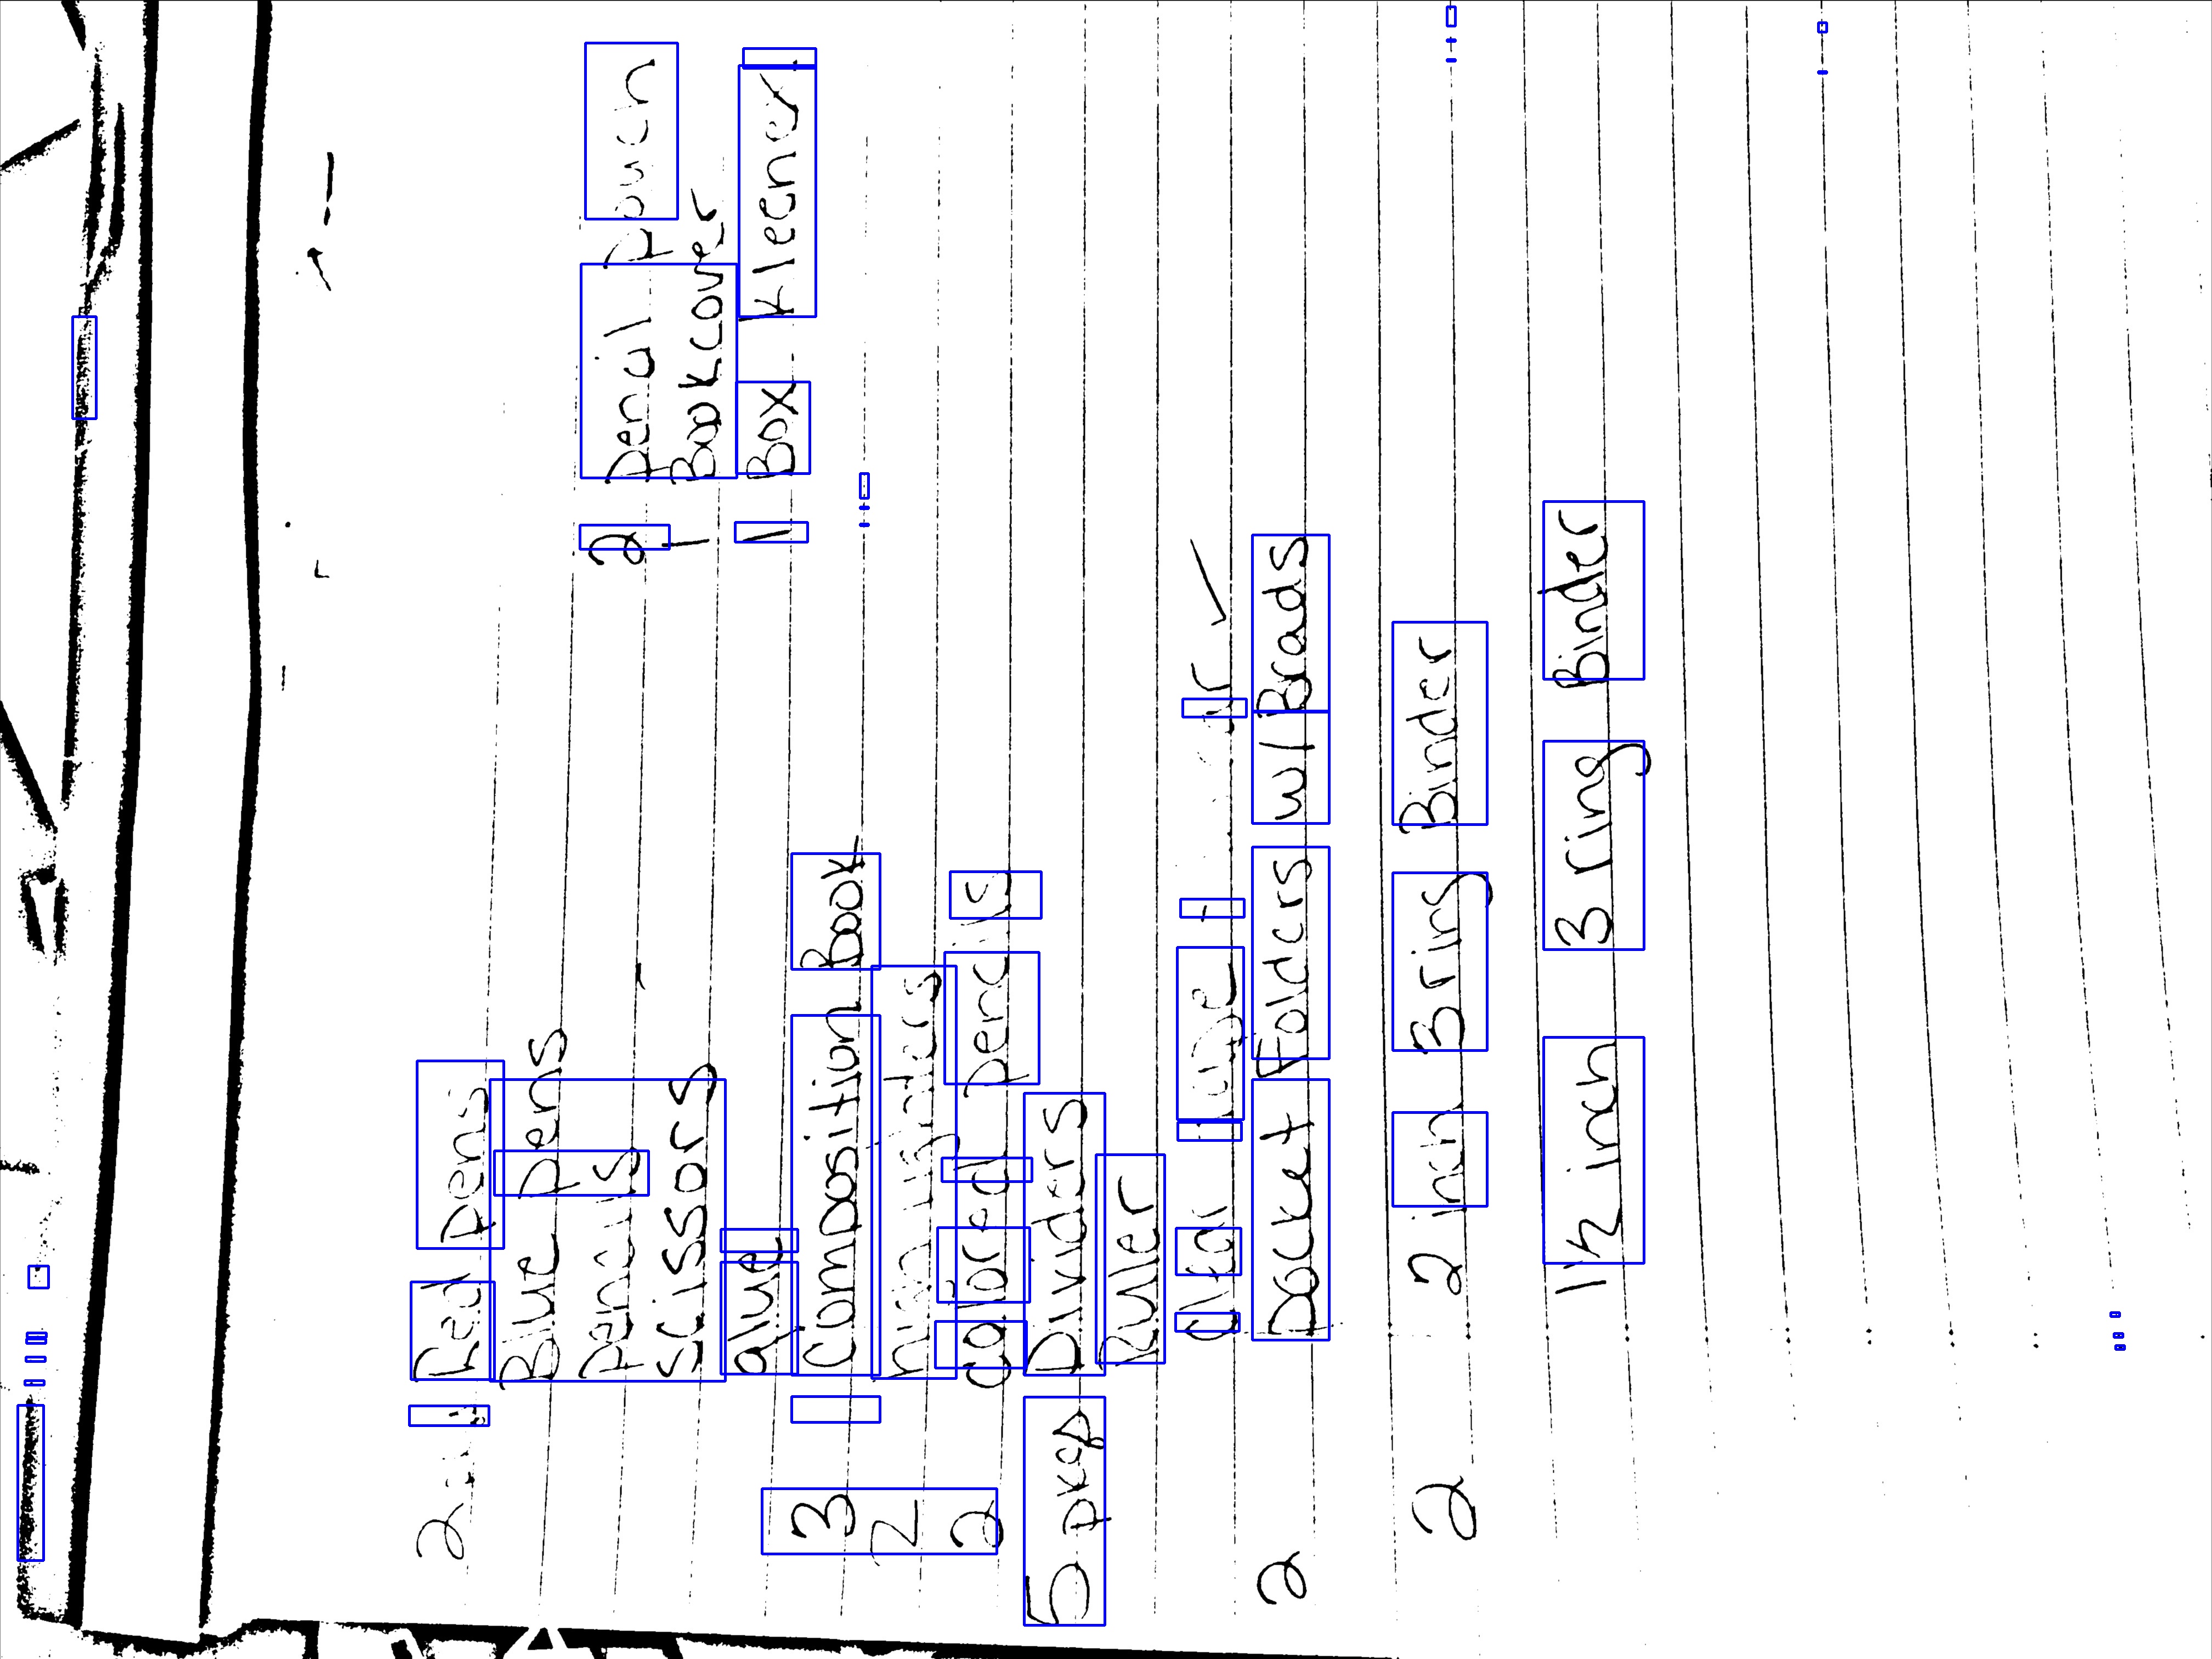 2 Red pens
Blue pens
Pencils
Scissors
glue
3 Composition Book
2 highlighters
2 Colored pencils
5 pkgs Dividers
Ruler
2 Pocket Folders w/Brads
2 2 inch 3 ring Binder
1½ inch 3 ring Binder
2 Pencil Pouch
1 Bookcover
1 Box Kleenex